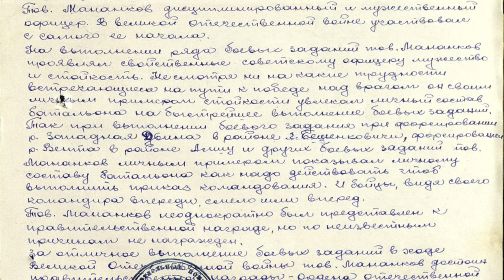 Тов. Мананков дисциплинированный и мужественный
офицер. В Великой Отечественной войне участвовал
с самого ее начала.
На выполнении ряда боевых заданий тов. Мананков
проявлял свойственные советскому офицеру мужество
и стойкость. Несмотря ни на какие трудности
встречающиеся на пути к победе над врагом он своим
личным примером стойкости увлекал личный состав
батальона на быстрейшее выполнение боевых заданий.
Так при выполнении боевого задания при форсировании
р. Западная Двина в районе г. Бешенковичи, форсировании
р. Вента в районе и других боевых заданий тов.
Мананков личным примером показывал личному
составу батальона как надо действовать чтоб
выполнить приказ командования. И бойцы, видя своего
командира впереди, смело шли вперед.
Тов. Мананков неоднократно был представлен к
правительственной награде, но по неизвестным
причинам не награжден.
За отличное выполнение боевых заданий в ходе
Великой Отечественной войны тов. Мананков достоин
правительственной награды - ордена Отечественной